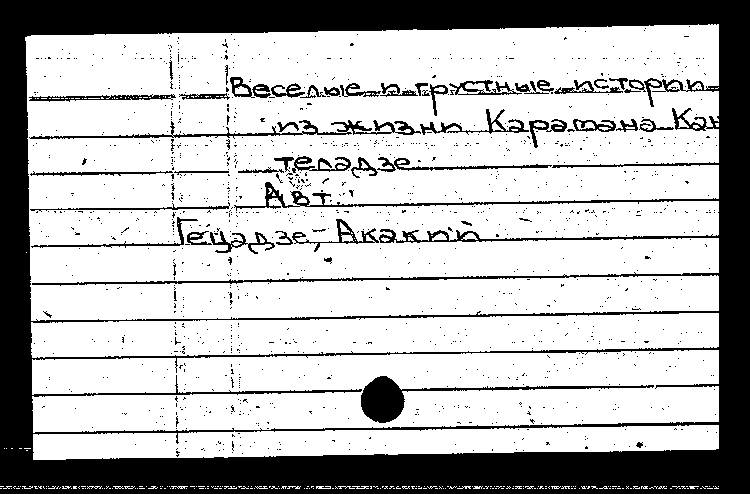 Веселые и грустные истории
из жизни Карамана Кан
теладзе
Авт.:
Гецадзе, Акакий.